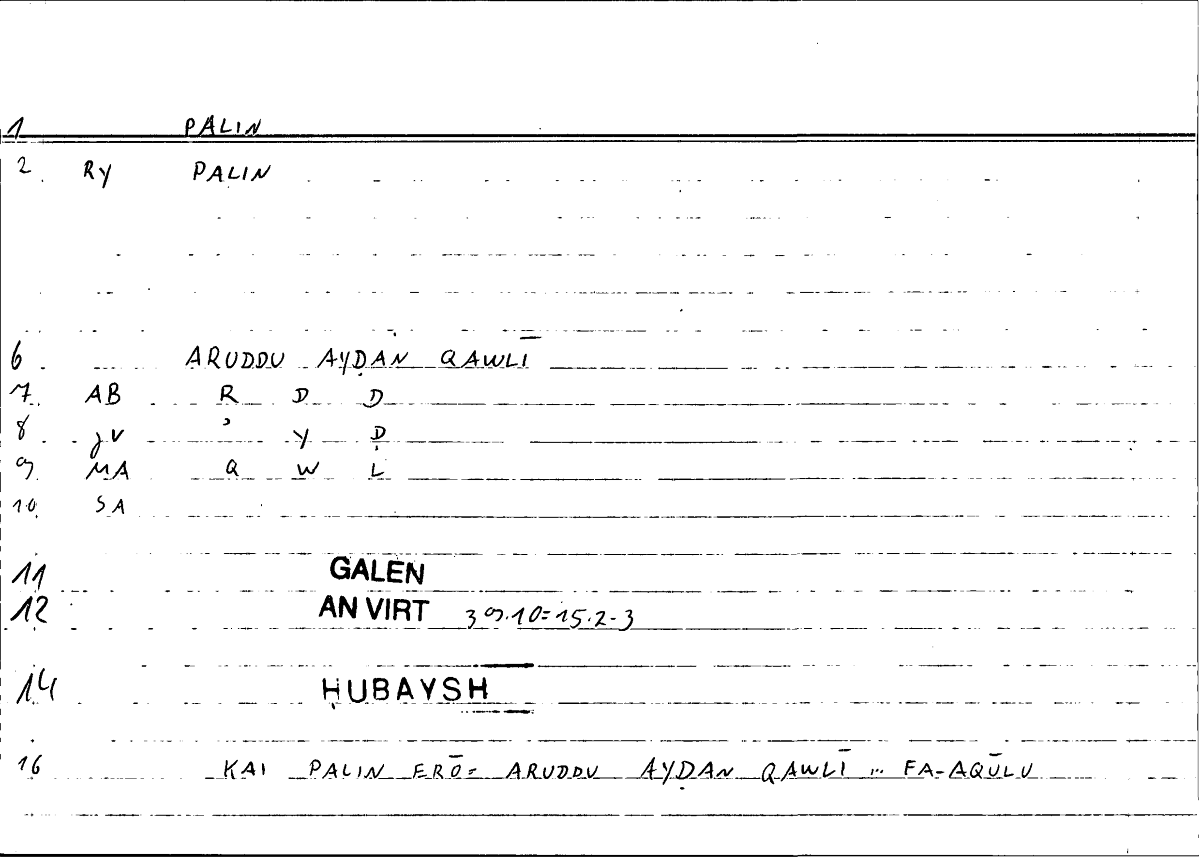 1 PALIN
2 RY PALIN
6 ARUDDU AYḌAN QAWLĪ
7 AB R D D
8 JV ʾ Y Ḍ
9 MA Q W L
10 SA
11 GALEN
12 AN VIRT 39.10=15.2-3
14 ḤUBAYSH
16 KAI PALIN ERŌ= ARUDDU AYḌAN QAWLĪ ... FA-AQŪLU